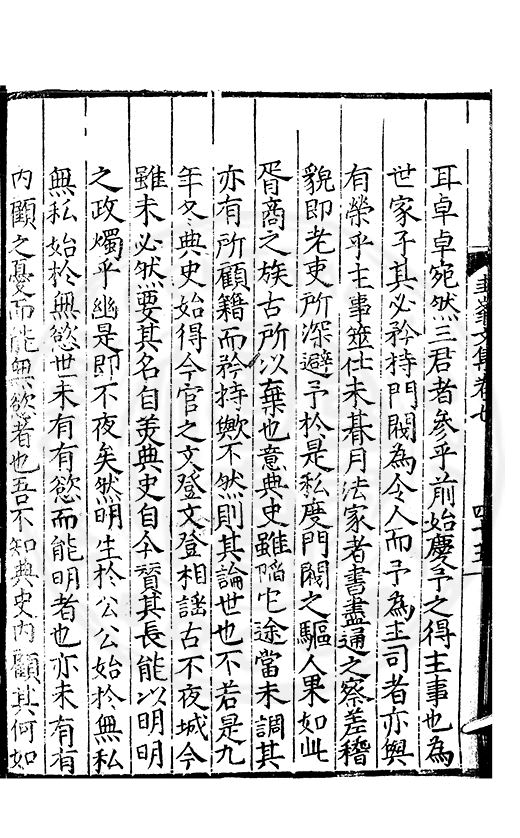 耳卓卓宛然三君者參乎前始慶予之得主事也為
世家子其必矜持門閥為令人而予為主司者亦與
有榮乎主事筮仕未朞月法家者書盡通之察差稽
貌即老吏所深避予於是私度門閥之驅人果如此
胥商之族古所以棄也意典史雖陷它途當未調其
亦有所顧籍而矜持歟不然則其論世也不若是九
年冬典史始得今官之文登文登相謡古不夜城今
雖未必然要其名自羙典史自今賛其長能以明明
之政燭乎幽是即不夜矣然明生於公公始於無私
無私始於無慾世未有有慾而能明者也亦未有有
内顧之憂而能無慾者也吾不知典史内顧其何如
文集卷七
四十五